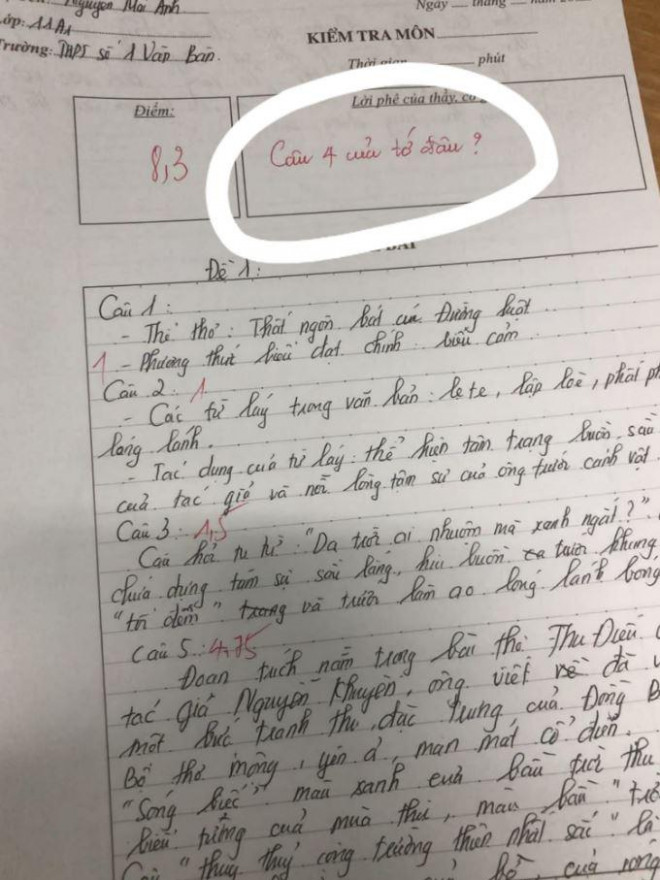 Nguyen Mai Anh
Ngày __ tháng __ năm
Lớp: 11A1
Trường: THPT số 1 Văn Bàn.
KIỂM TRA MÔN
Thời gian phút
Điểm:
Lời phê của thầy, cô
8,3
Câu 4 của tớ đâu?
BÀI
Đề 1:
Câu 1:
- Thể thơ: Thất ngôn bát cú Đường luật
1 - Phương thức biểu đạt chính: biểu cảm
Câu 2: 1
- Các từ láy trong văn bản: le te, lập loè, phất ph
lóng lánh.
- Tác dụng của từ láy: thể hiện tâm trạng buồn, sầu
của tác giả và nỗi lòng tâm sự của ông trước cảnh vật.
Câu 3: 1,5
Câu hỏi tu từ: "Da trời ai nhuộm mà xanh ngắt?"
chứa đựng tâm sự sâu lắng, hiu buồn trước khung
"tối đêm" trong và trước làn ao lóng lánh bóng
Câu 5: 4,75
Đoạn trích nằm trong bài thơ Thu Điếu. C
tác giả Nguyễn Khuyến, ông viết về đã v
một bức tranh thu đặc trưng của Đồng B
Bộ thơ mộng, yên ả, man mát cổ điển.
"Sóng biếc" màu xanh của bầu trời thu
biểu tượng của mùa thu, màu bầu "trời
Câu "thuỷ cộng trường thiên nhất sắc" là
của sông